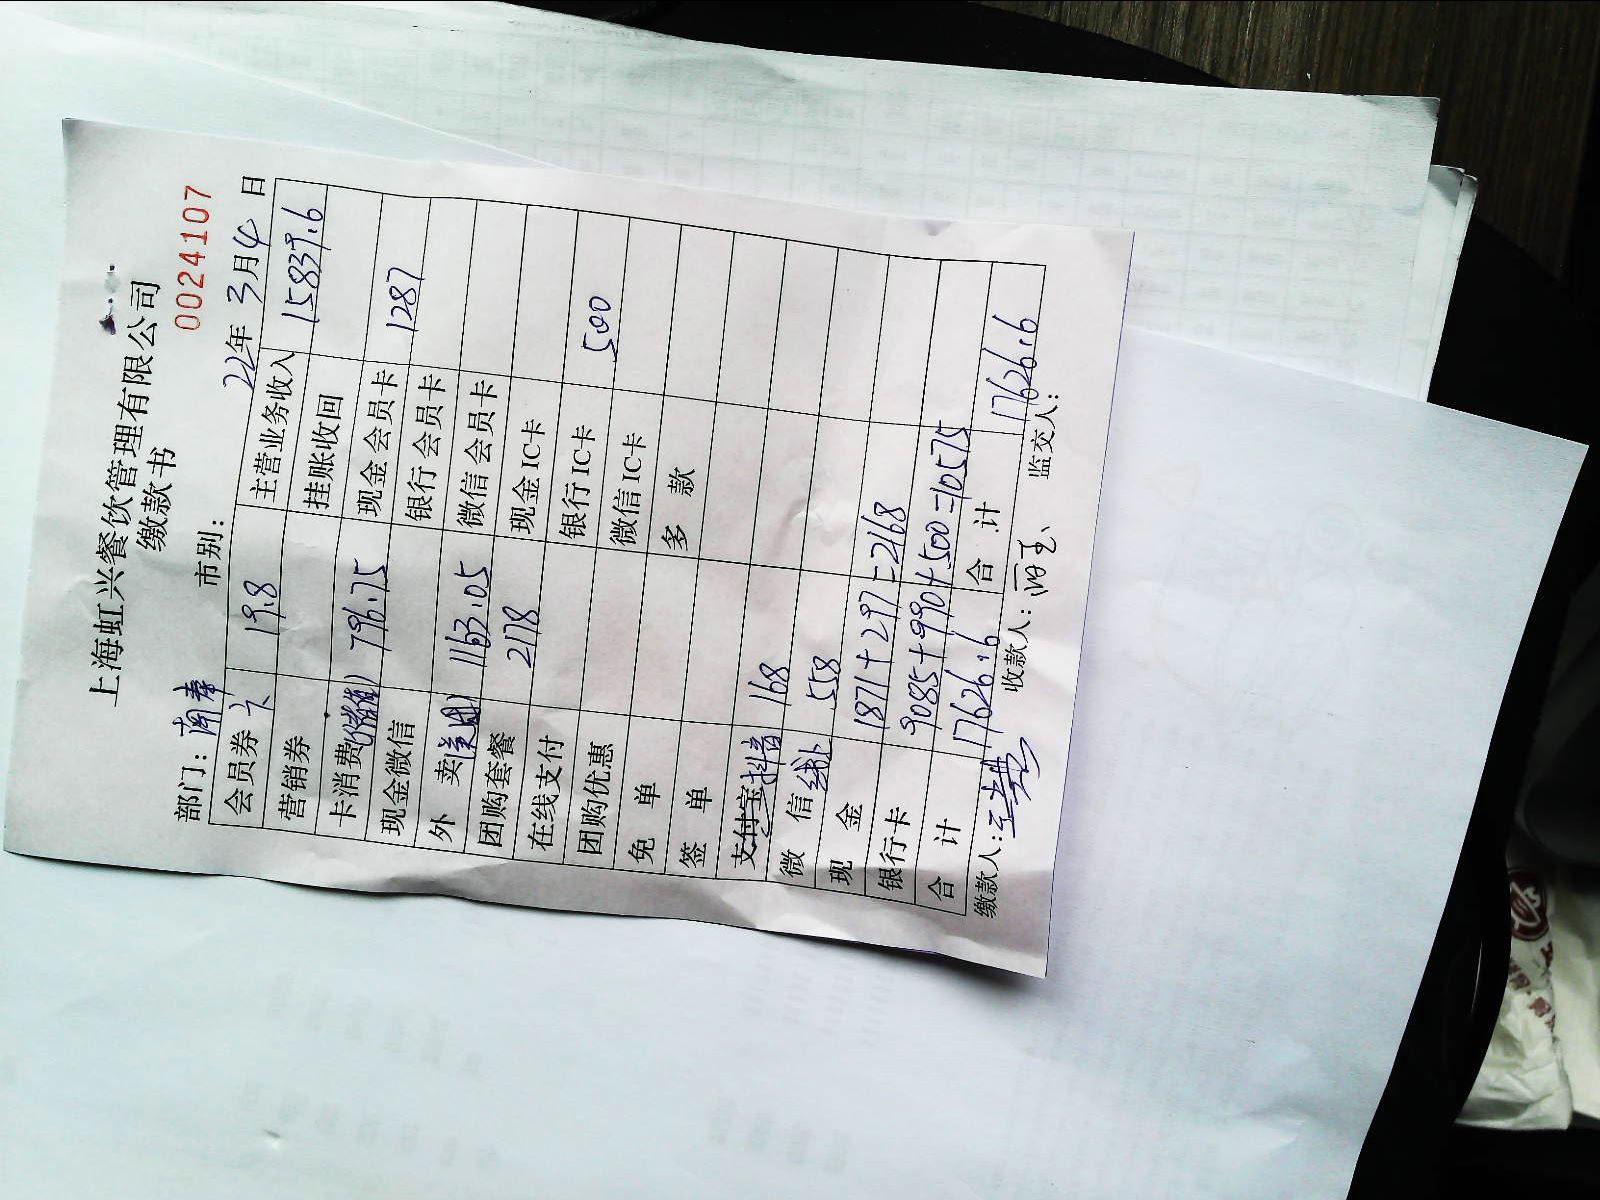 上海虹兴餐饮管理有限公司
缴款书
0024107
部门： 市别： 22年 3月4日
会员券 19.8 主营业务收入 15839.6
营销券 挂账收回
卡消费 796.75 现金会员卡 1287
现金微信 银行会员卡
外 卖(美团) 1163.05 微信会员卡
团购套餐 2178 现金IC卡
在线支付 银行IC卡 500
团购优惠 微信IC卡
免 单 多 款
签 单
支付宝 抖音 168
微 信 558
现 金 1871+297=2168
银行卡 9085+990+500=10575
合 计 17626.6 合 计 17626.6
缴款人： 收款人： 监交人：